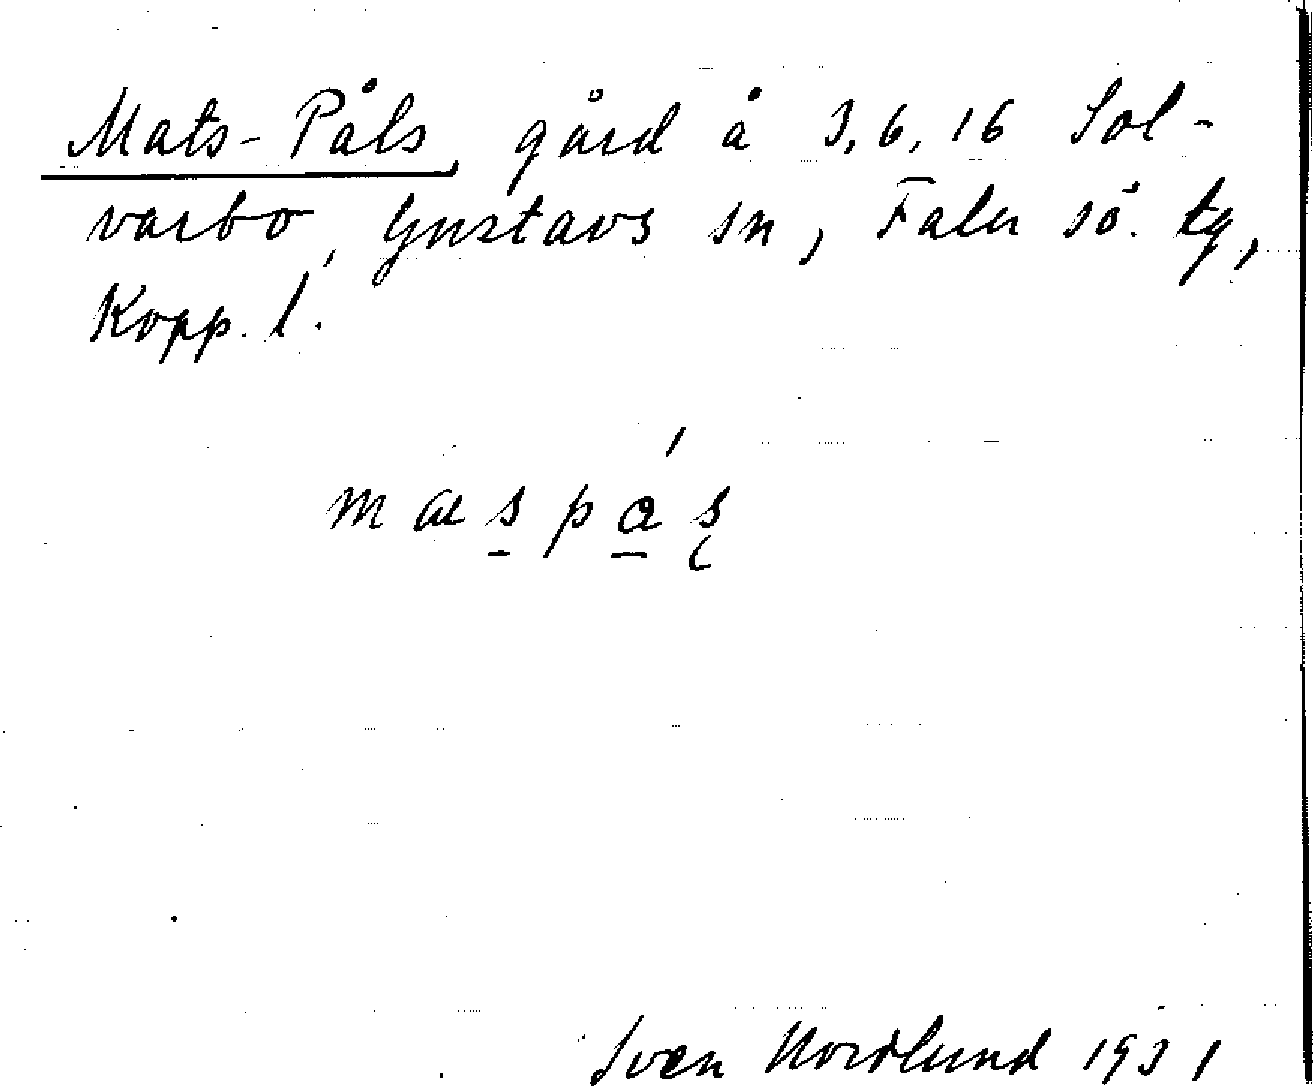 Mats-Påls, gård å 3, 6, 16 Sol-
varbo, Gustavs sn, Falu sö. tg,
Kopp. l.
Sven Nordlund 1931